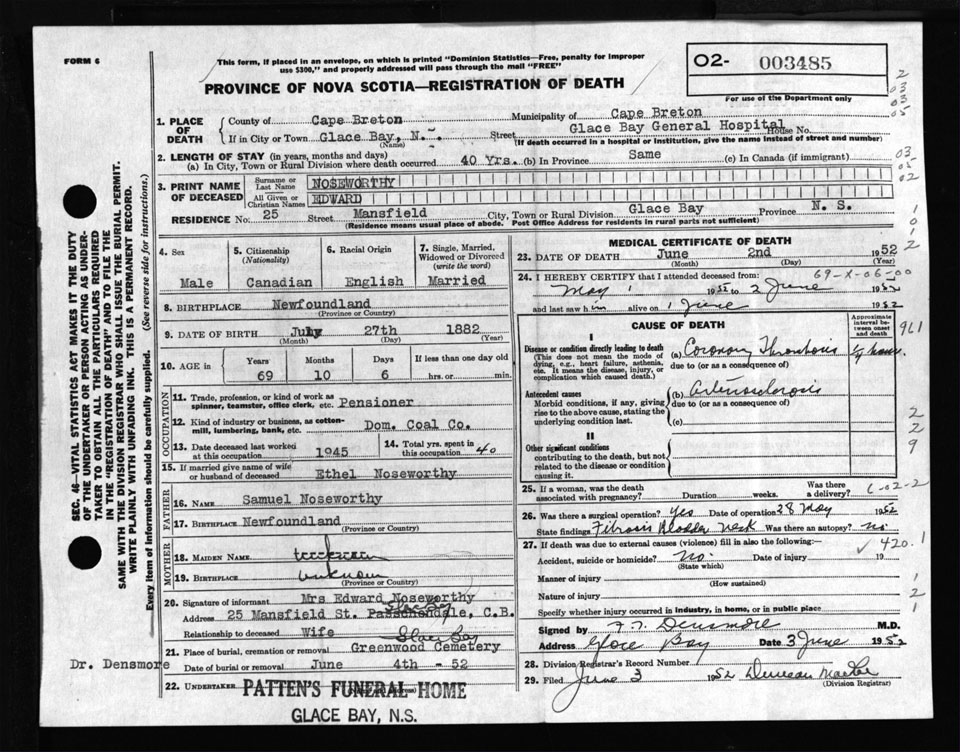 FORM 6
This form, if placed in an envelope, on which is printed "Dominion Statistics—Free, penalty for improper
use $300," and properly addressed will pass through the mail "FREE"
O2- 003485
For use of the Department only
2
03
03
05
PROVINCE OF NOVA SCOTIA—REGISTRATION OF DEATH
1. PLACE OF DEATH
County of Cape Breton Municipality of Cape Breton
If in City or Town Glace Bay, N. Street Glace Bay General Hospital House No.
(Name) (If death occurred in a hospital or institution, give the name instead of street and number)
2. LENGTH OF STAY (in years, months and days)
(a) In City, Town or Rural Division where death occurred 40 Yrs. (b) In Province Same (c) In Canada (if immigrant)
03
05
02
3. PRINT NAME OF DECEASED
Surname or Last Name NOSEWORTHY
All Given or Christian Names EDWARD
RESIDENCE No. 25 Street Mansfield City, Town or Rural Division Glace Bay Province N. S.
(Residence means usual place of abode. Post Office Address for residents in rural parts not sufficient)
4. Sex
Male
5. Citizenship
(Nationality)
Canadian
6. Racial Origin
English
7. Single, Married, Widowed or Divorced
(write the word)
Married
8. BIRTHPLACE Newfoundland
(Province or Country)
9. DATE OF BIRTH July 27th 1882
(Month) (Day) (Year)
10. AGE in
Years 69
Months 10
Days 6
If less than one day old
hrs. or min.
OCCUPATION
11. Trade, profession, or kind of work as spinner, teamster, office clerk, etc. Pensioner
12. Kind of industry or business, as cotton-mill, lumbering, bank, etc. Dom. Coal Co.
13. Date deceased last worked at this occupation 1945
14. Total yrs. spent in this occupation 40
15. If married give name of wife or husband of deceased Ethel Noseworthy
FATHER
16. NAME Samuel Noseworthy
17. BIRTHPLACE Newfoundland
(Province or Country)
MOTHER
18. MAIDEN NAME
19. BIRTHPLACE unknown
(Province or Country)
20. Signature of informant Mrs Edward Noseworthy
Address 25 Mansfield St. Passchendale, C.B.
Glace Bay
Relationship to deceased Wife
Glace Bay
21. Place of burial, cremation or removal Greenwood Cemetery
Date of burial or removal June 4th - 52
22. UNDERTAKER PATTEN'S FUNERAL HOME
GLACE BAY, N.S.
Dr. Densmore
MEDICAL CERTIFICATE OF DEATH
23. DATE OF DEATH June 2nd 1952
(Month) (Day) (Year)
69-X-06-00
24. I HEREBY CERTIFY that I attended deceased from:
May 1 1952 to 2 June 1952
and last saw him alive on 1 June 1952
CAUSE OF DEATH
Approximate interval between onset and death
I
Disease or condition directly leading to death
(This does not mean the mode of dying, e.g., heart failure, asthenia, etc. It means the disease, injury, or complication which caused death.)
(a) Coronary Thrombosis
due to (or as a consequence of)
961
Antecedent causes
Morbid conditions, if any, giving rise to the above cause, stating the underlying condition last.
(b) Arteriosclerosis
due to (or as a consequence of)
(c)
II
Other significant conditions
contributing to the death, but not related to the disease or condition causing it.
2
2
9
25. If a woman, was the death associated with pregnancy? Duration weeks. Was there a delivery?
6-02-2
26. Was there a surgical operation? yes Date of operation 28 May 1952
State findings Fibrosis Bladder Neck Was there an autopsy? no
27. If death was due to external causes (violence) fill in also the following:—
420.1
Accident, suicide or homicide? no. Date of injury 19
(State which)
Manner of injury
(How sustained)
Nature of injury
Specify whether injury occurred in industry, in home, or in public place
1
2
1
Signed by Densmore M.D.
Address Glace Bay Date 3 June 1952
28. Division Registrar's Record Number
29. Filed June 3 1952 Duncan
(Division Registrar)
SEC. 46—VITAL STATISTICS ACT MAKES IT THE DUTY
OF THE UNDERTAKER OR PERSON ACTING AS UNDER-
TAKER TO OBTAIN ALL THE PARTICULARS REQUIRED
IN THE "REGISTRATION OF DEATH" AND TO FILE THE
SAME WITH THE DIVISION REGISTRAR WHO SHALL ISSUE THE BURIAL PERMIT.
WRITE PLAINLY WITH UNFADING INK. THIS IS A PERMANENT RECORD.
Every item of information should be carefully supplied. (See reverse side for instructions.)